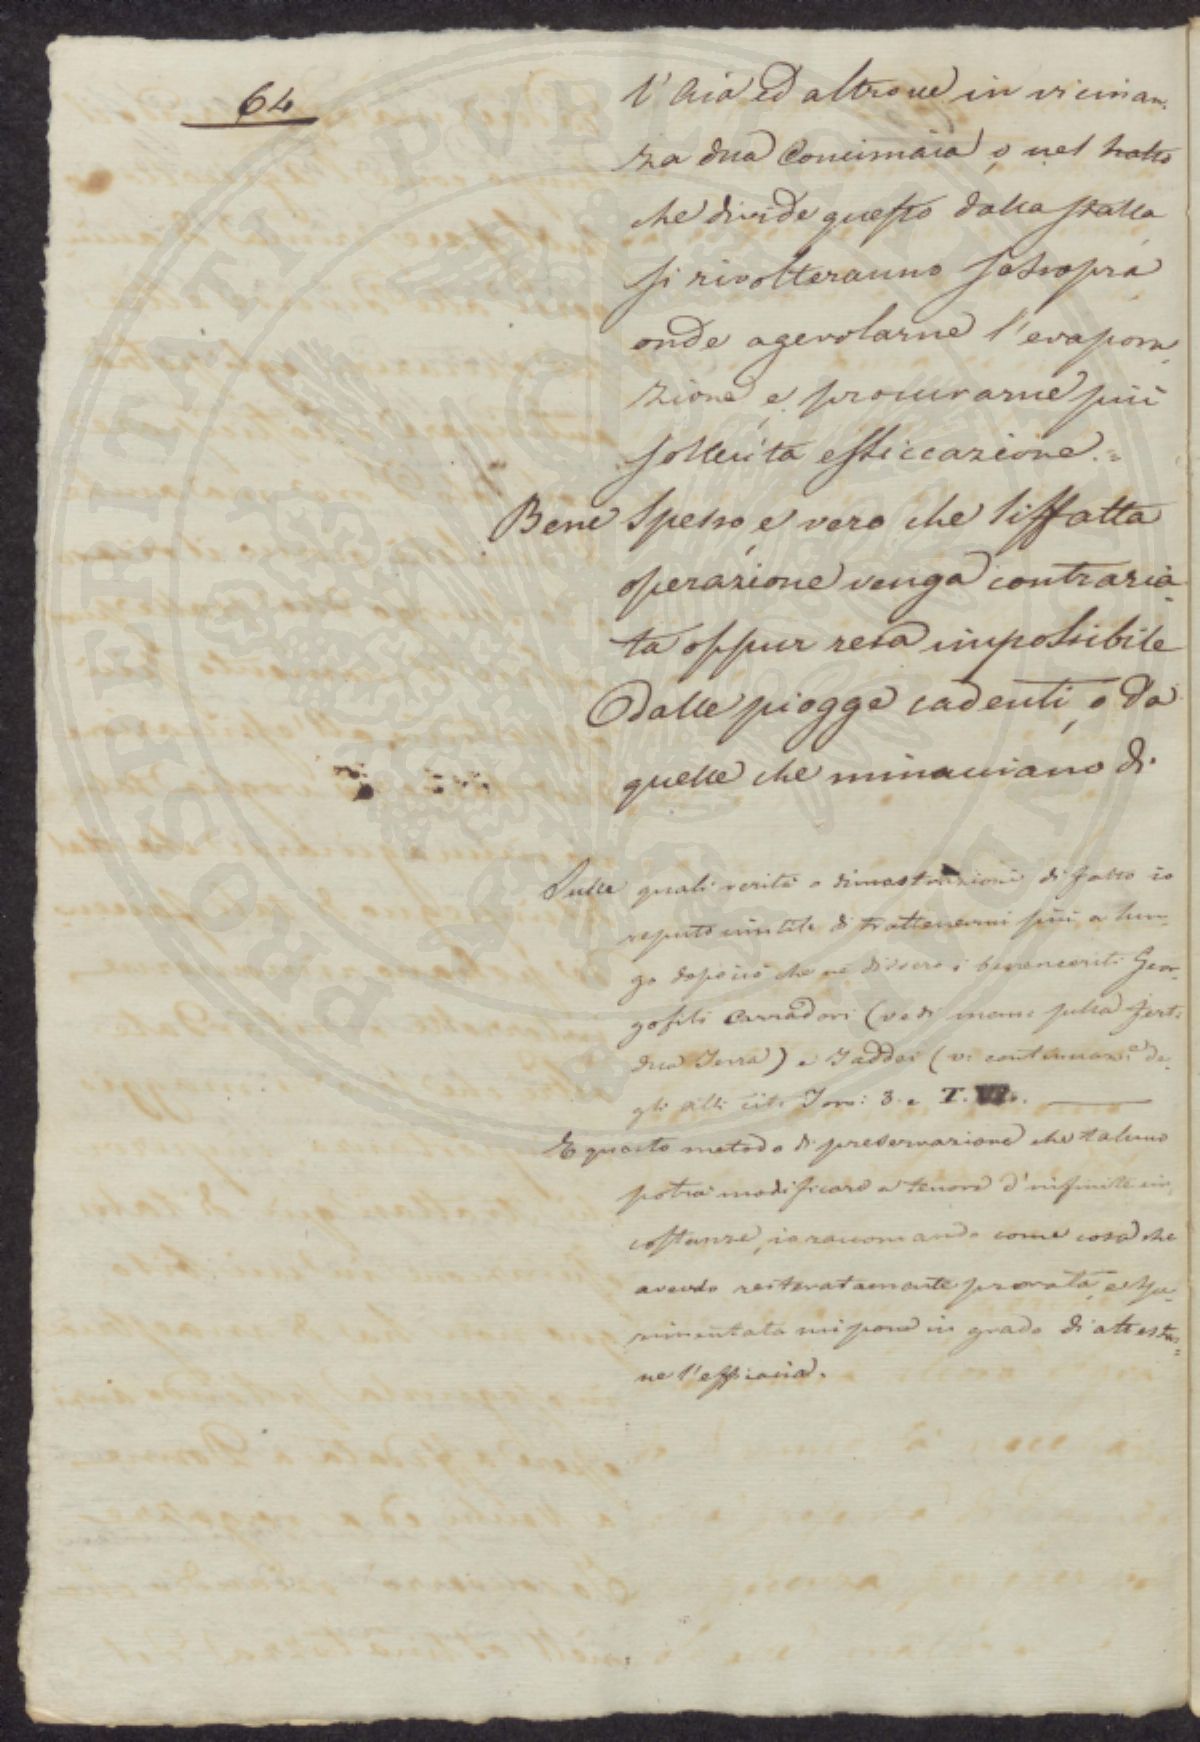 64
l'Aia ed altrove in vicinan-
za dna Concimaia, o nel tratto
che divide questo dalla stalla
si rivolteranno sotsopra
onde agevolarne l'evapora-
zione, e procurarne più
sollecita essiccazione.=
Bene spesso è vero che siffatta
operazione venga contraria-
ta oppur resa impossibile
dalle piogge cadenti, o da
quelle che minacciano di
Sulle quali verità e dimostrazioni di fatto io
reputo inutile di trattenermi più a lun-
go dopo ciò che ne dissero i benemeriti Geor-
gofili Carradori (vedi mem: sulla fert:
dna Terra) e Taddei (v: continuaz:e de-
gli Atti cit: Tom: 3. e T. VI.
E questo metodo di preservazione che taluno
potrà modificare a tenore d'infinite cir-
costanze, io raccomando come cosa che
avendo reiteratamente provata, e spe-
rimentata mi pone in grado di attestar-
ne l'efficacia.